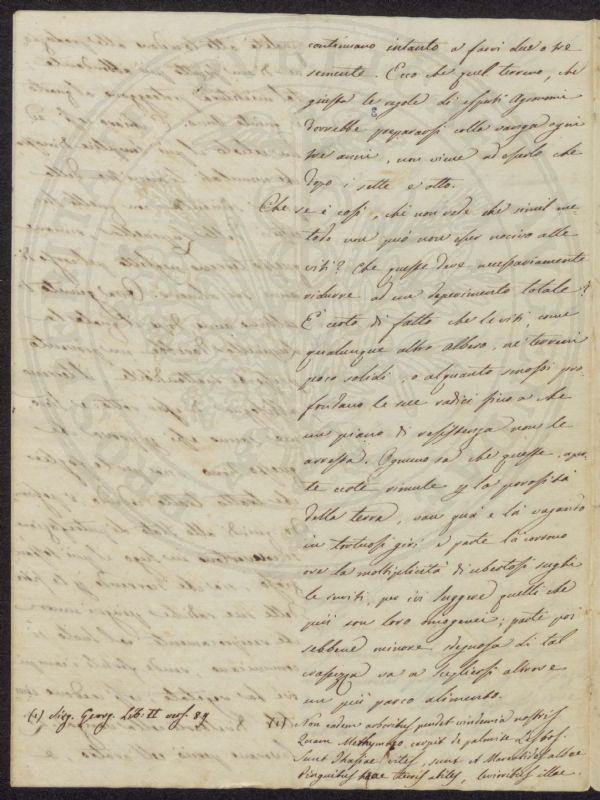 continuano intanto a farvi due o tre
semente. Ecco che quel terreno, che
giusta le regole di esperti Agronomi
dovrebbe prepararsi colla vanga ogni
tre anni, non viene ad esserlo che
dopo i sette e otto.
Che se è così, chi non vede che simil me-
todo non può non esser nocivo alle
viti? Che queste deve necessariamente
ridurre ad un deperimento totale?
E' certo di fatto che le viti, come
qualunque altro albero, ne' terreni
poco solidi, o alquanto smossi pro-
fondano le sue radici fino a che
un piano di resistenza non le
arresta. Ognuno sa che queste,
te certe vie la porosità
della terra, van quà e là vagando
in tortuosi giri e parte là corrono
ove la moltiplicità di ubertosi sughi
le inviti, per ivi suggere quelli che
più son loro omogenei; parte poi
sebbene minore sdegnosa di tal
crassezza va a scegliersi altrove
un più parco alimento.
(1) Virg. Georg. Lib. II vers. 89
(1) Non eadem arboribus pendet vindemia nostris
Quam Methymnaeo carpit de palmite Lesbos.
Sunt Thasiae vites, sunt et Mareotides albae
Pinguibus hae terris habiles, levioribus illae.